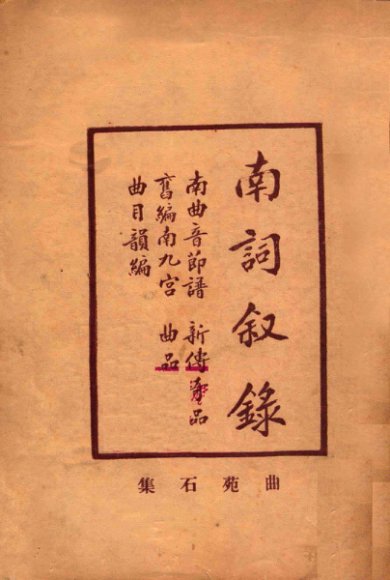 南詞叙錄
南曲音節譜 新傳奇品
舊編南九宮 曲品
曲目韻編
曲苑石集